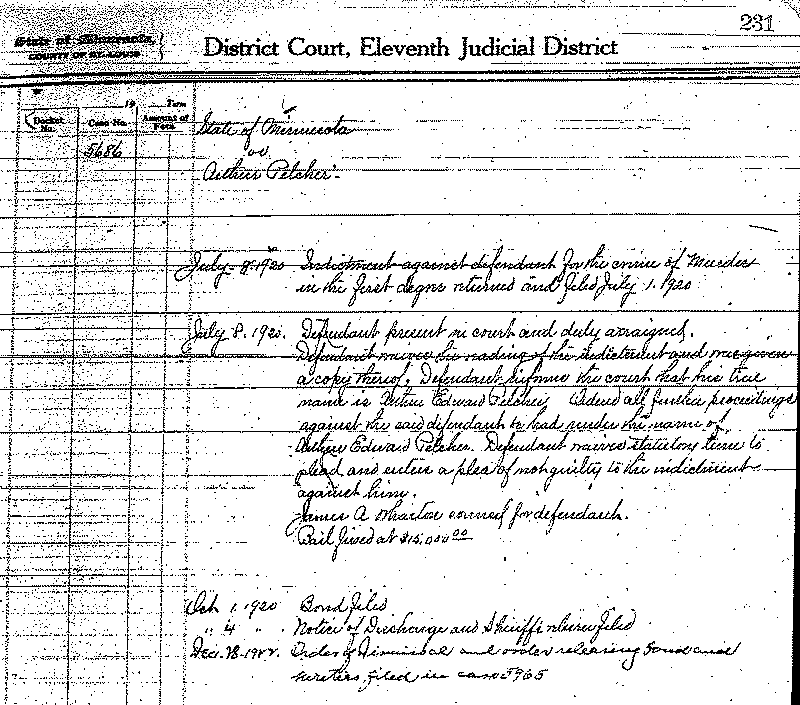 231
State of Minnesota,
COUNTY OF ST. LOUIS
District Court, Eleventh Judicial District
19 Term
Docket No.
Case No.
Amount of Fees
State of Minnesota
5686
vs.
Arthur Pelcher.
July 8. 1920 Indictment against defendant for the crime of Murder
in the first degree returned and filed July 1. 1920
July 8. 1920. Defendant present in court and duly arraigned.
Defendant waives the reading of the indictment and was given
a copy thereof. Defendant informs the court that his true
name is Arthur Edward Pelcher. Ordered all further proceedings
against the said defendant be had under the name of
Arthur Edward Pelcher. Defendant waives statutory time to
plead and enters a plea of not guilty to the indictment
against him.
James A counsel for defendant.
Bail fixed at $15,000 00
Oct 1. 1920 Bond filed
" 4 " Notice of Discharge and Sheriff return filed
Dec. 28. 1922. Order of dismissal and order releasing bond and
sureties, filed in case 5965